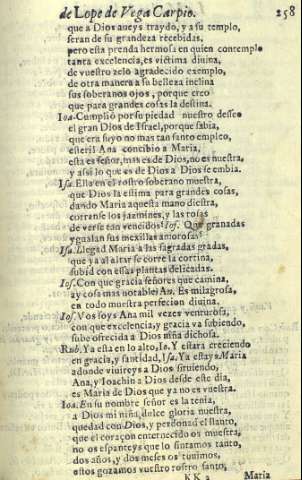 de Lope de Vega Carpio. 258
que a Dios aueys traydo, y a su templo,
seran de su grandeza recebidas,
pero esta prenda hermosa en quien contemplo
tanta excelencia, es victima diuina,
de vuestro zelo agradecido exemplo,
de otra manera a su belleza inclina
sus soberanos ojos, porque creo
que para grandes cosas la destina.
Ioa. Cumpliò por su piedad nuestro desseo
el gran Dios de Israel, porque sabia,
que era suyo no mas tan santo empleo,
esteril Ana concibio a Maria,
esta es señor, mas es de Dios, no es nuestra,
y assi lo que es de Dios a Dios se embia.
Isa. Ella en el rostro soberano muestra,
que Dios la estima para grandes cosas,
dando Maria aquesta mano diestra,
corrense los jazmines, y las rosas
de verse tan vencidos Iof. Que granadas
ygualan sus mexillas amorosas
Isa. Llegad Maria a las sagradas gradas,
que ya al altar se corre la cortina,
subid con essas plantas delicadas.
Iof. Con que gracia señores que camina,
ay cosa mas notable? An. Es milagrosa,
en todo muestra perfecion diuina.
Iof. Vos soys Ana mil vezes venturosa,
con que excelencia, y gracia va subiendo,
sube ofrecida a Dios niña dichosa.
Rub. Ya esta en lo alto, Is. Y estara creciendo
en gracia, y santidad, Isa. Ya estays Maria
adonde viuireys a Dios siruiendo,
Ana, y Ioachin a Dios desde este dia,
es Maria de Dios que ya no es vuestra.
Ioa. En su nombre señor es la tenia,
a Dios mi niña, dulce gloria nuestra,
quedad con Dios, y perdonad el llanto,
que el coraçon enternecido os muestra,
no os espanteys que lo sintamos tanto,
dos años, y dos meses os tuuimos,
estos gozamos vuestro rostro santo,
KK 2 Maria